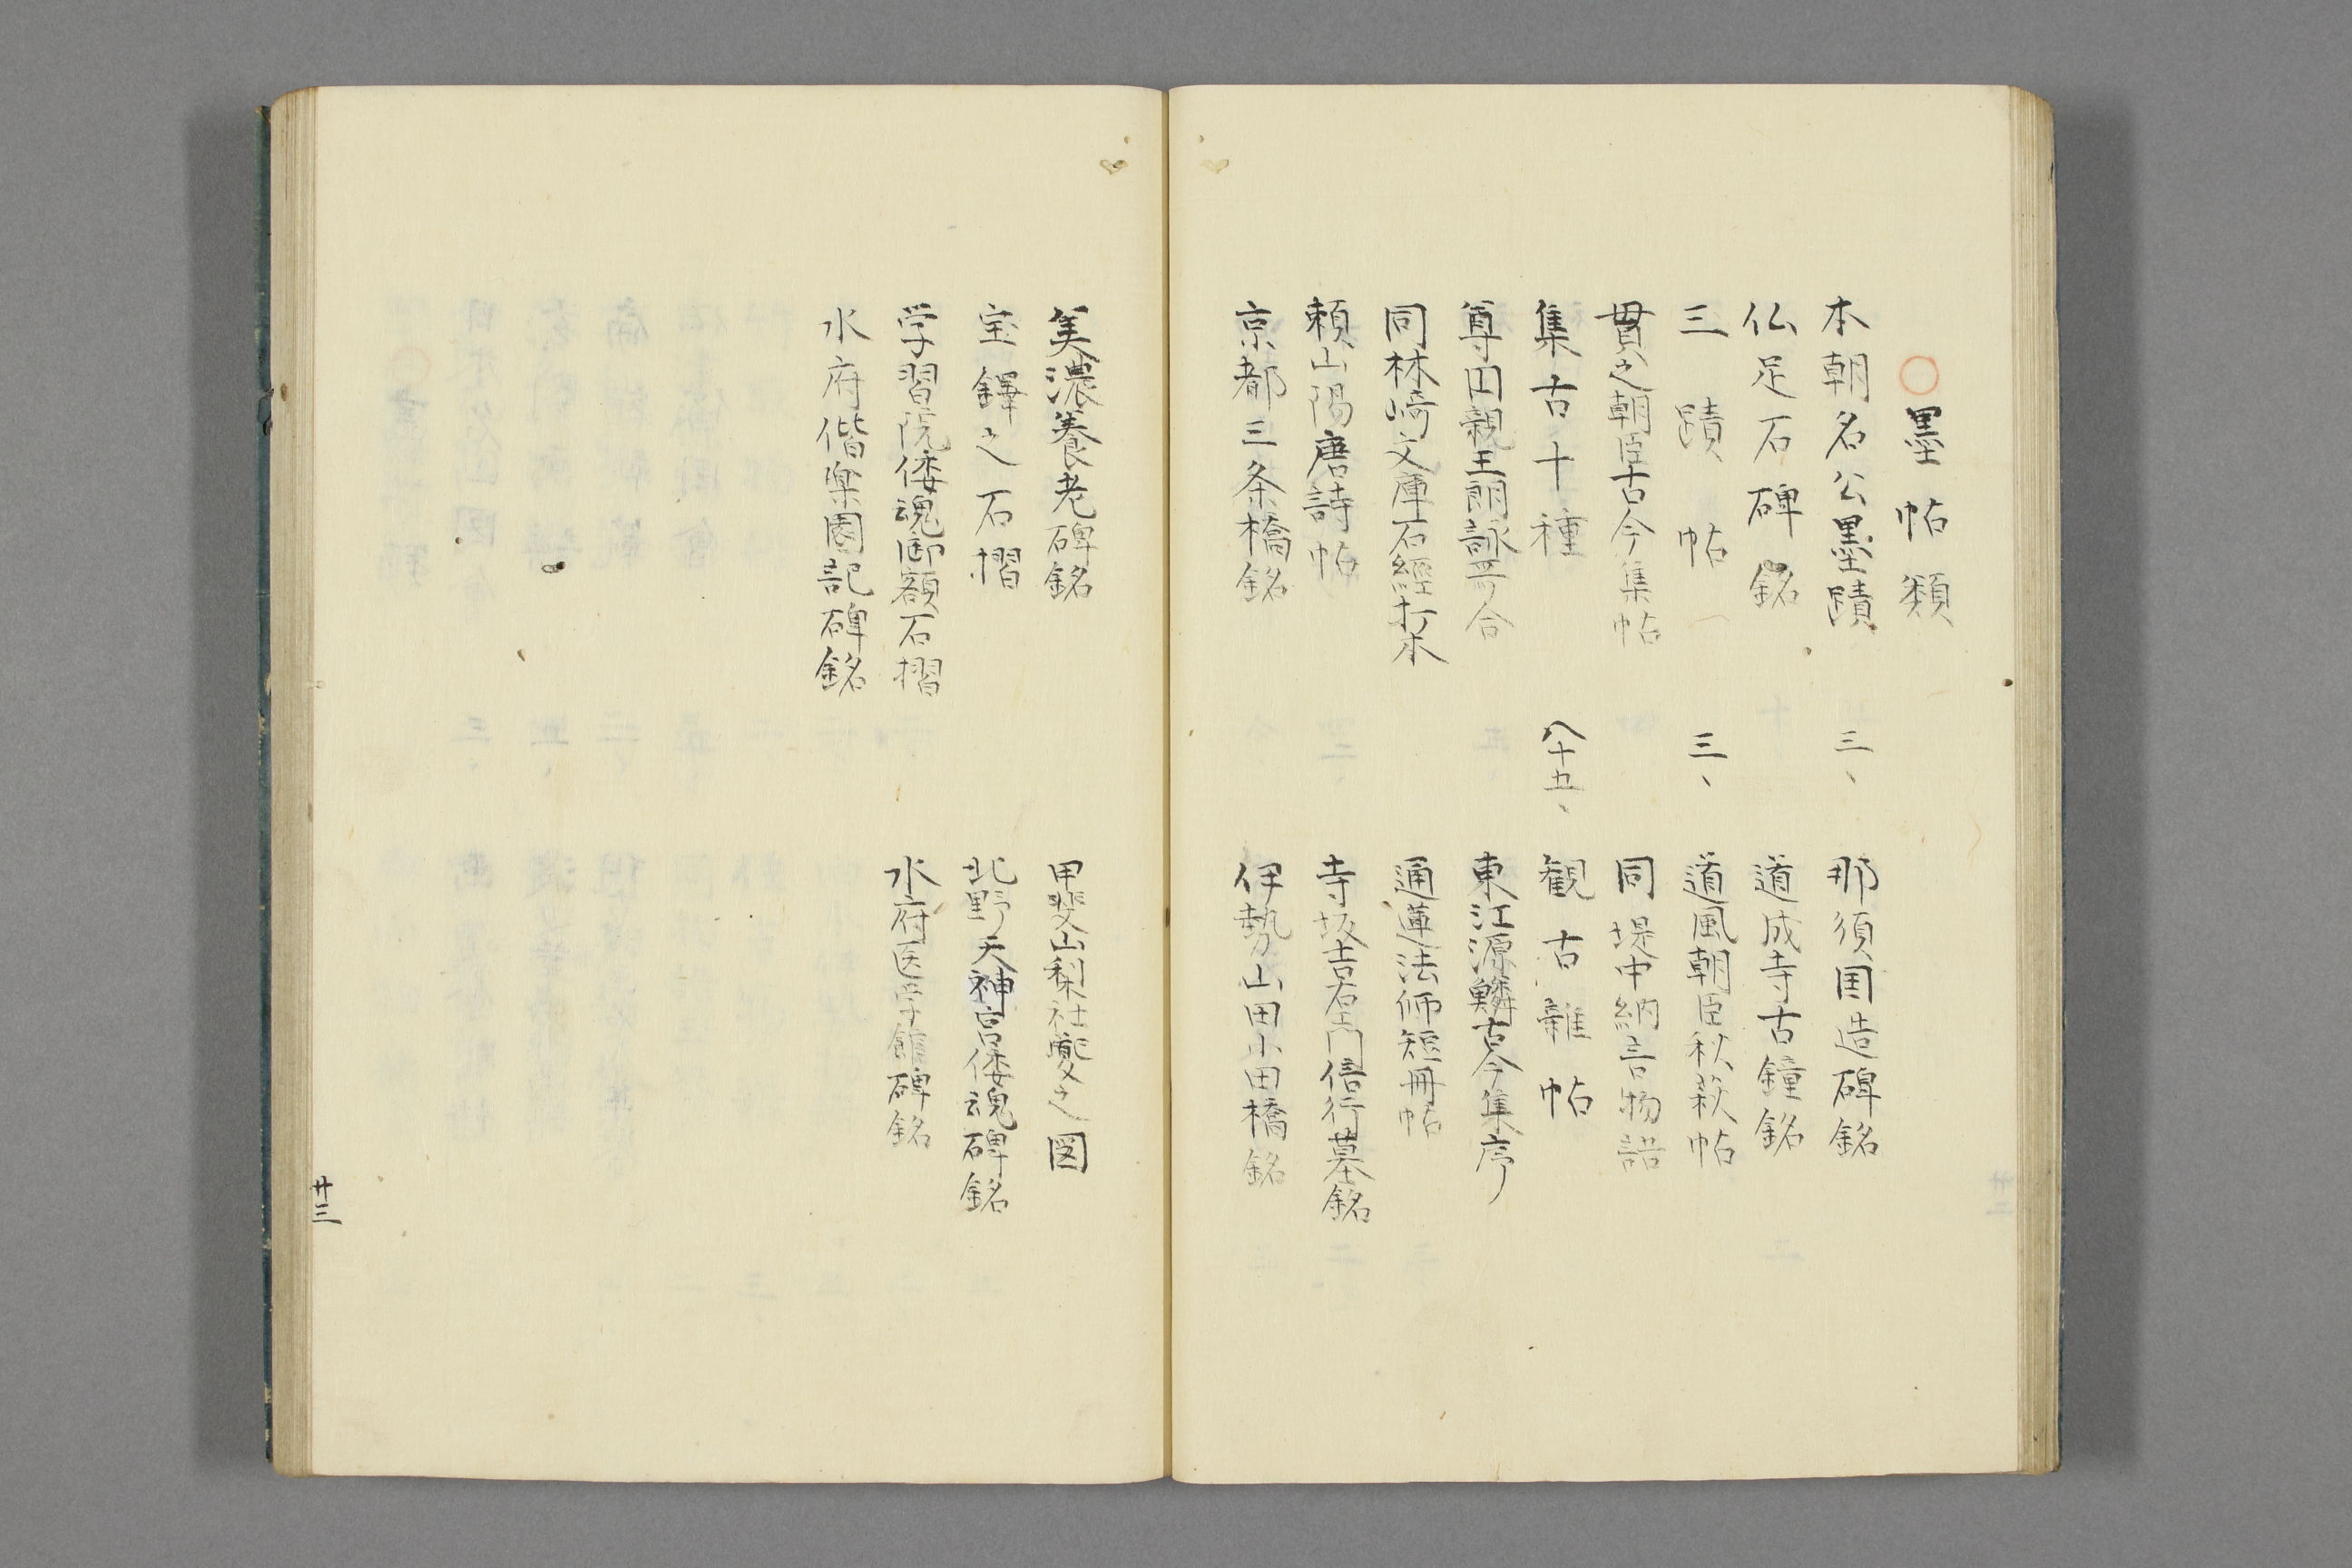 ○墨帖類
本朝名公墨蹟 三、 那須国造碑銘
仏足石碑銘 道成寺古鐘銘
三蹟帖 三、 道風朝臣秋萩帖
貫之朝臣古今集帖 同堤中納言物語
集古十種 八十五、 観古雑帖
尊円親王朗詠哥合 東江源鱗古今集序
同林崎文庫石経打本 通蓮法师短冊帖
頼山陽唐詩帖 寺坂吉右エ門信行墓銘
京都三条橋銘 伊勢山田小田橋銘
美濃養老碑銘 甲斐山梨社夔之図
宝鐸之石摺 北野天神宮倭魂碑銘
学習院倭魂御額石摺 水府医学館碑銘
水府偕楽園記碑銘
廿三